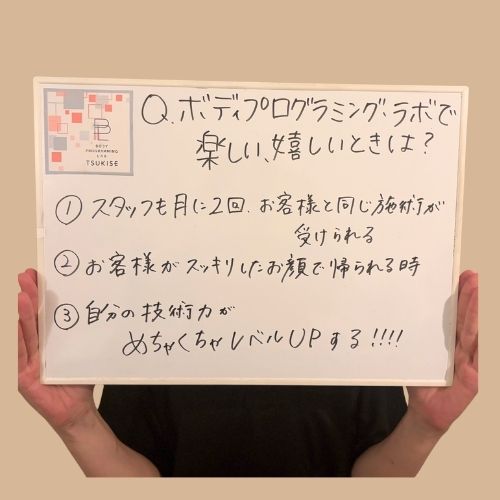 BPL
BODY
PROGRAMMING
LAB
TSUKISE
Q.ボディプログラミング・ラボで
楽しい、嬉しいときは？
① スタッフも月に2回、お客様と同じ施術が
受けられる
② お客様がスッキリしたお顔で帰られる時
③ 自分の技術力が
めちゃくちゃレベルUPする!!!!